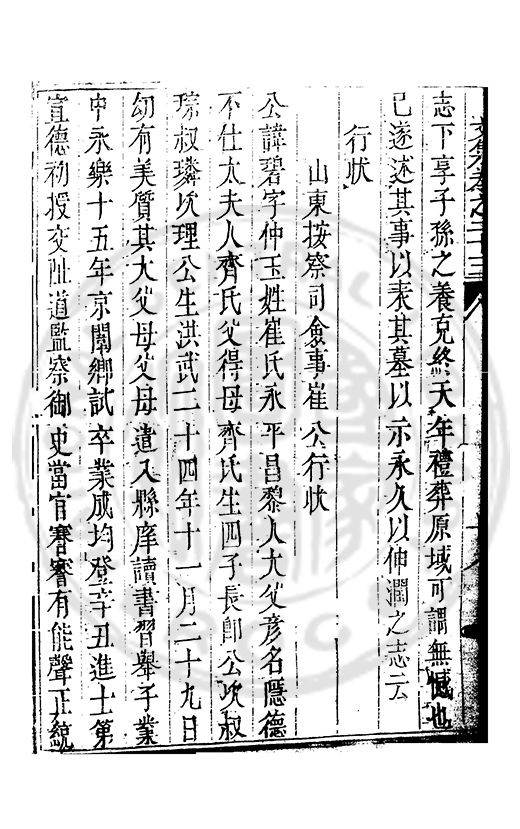 志下享子孫之養克終天年禮葬原域可謂無憾也
已遂述其事以表其墓以示永久以伸潤之志云
行狀
山東按察司僉事崔公行狀
公諱碧字仲玉姓崔氏永平昌黎人大父彥名隱德
不仕太夫人齊氏父得母齊氏生四子長卽公次叔
琮叔璘次理公生洪武二十四年十一月二十九日
幼有美質其大父母父母遣入縣庠讀書習舉子業
中永樂十五年京闈鄉試卒業成均登辛丑進士第
宣德初授交阯道監察御史當官謇謇有能聲正統